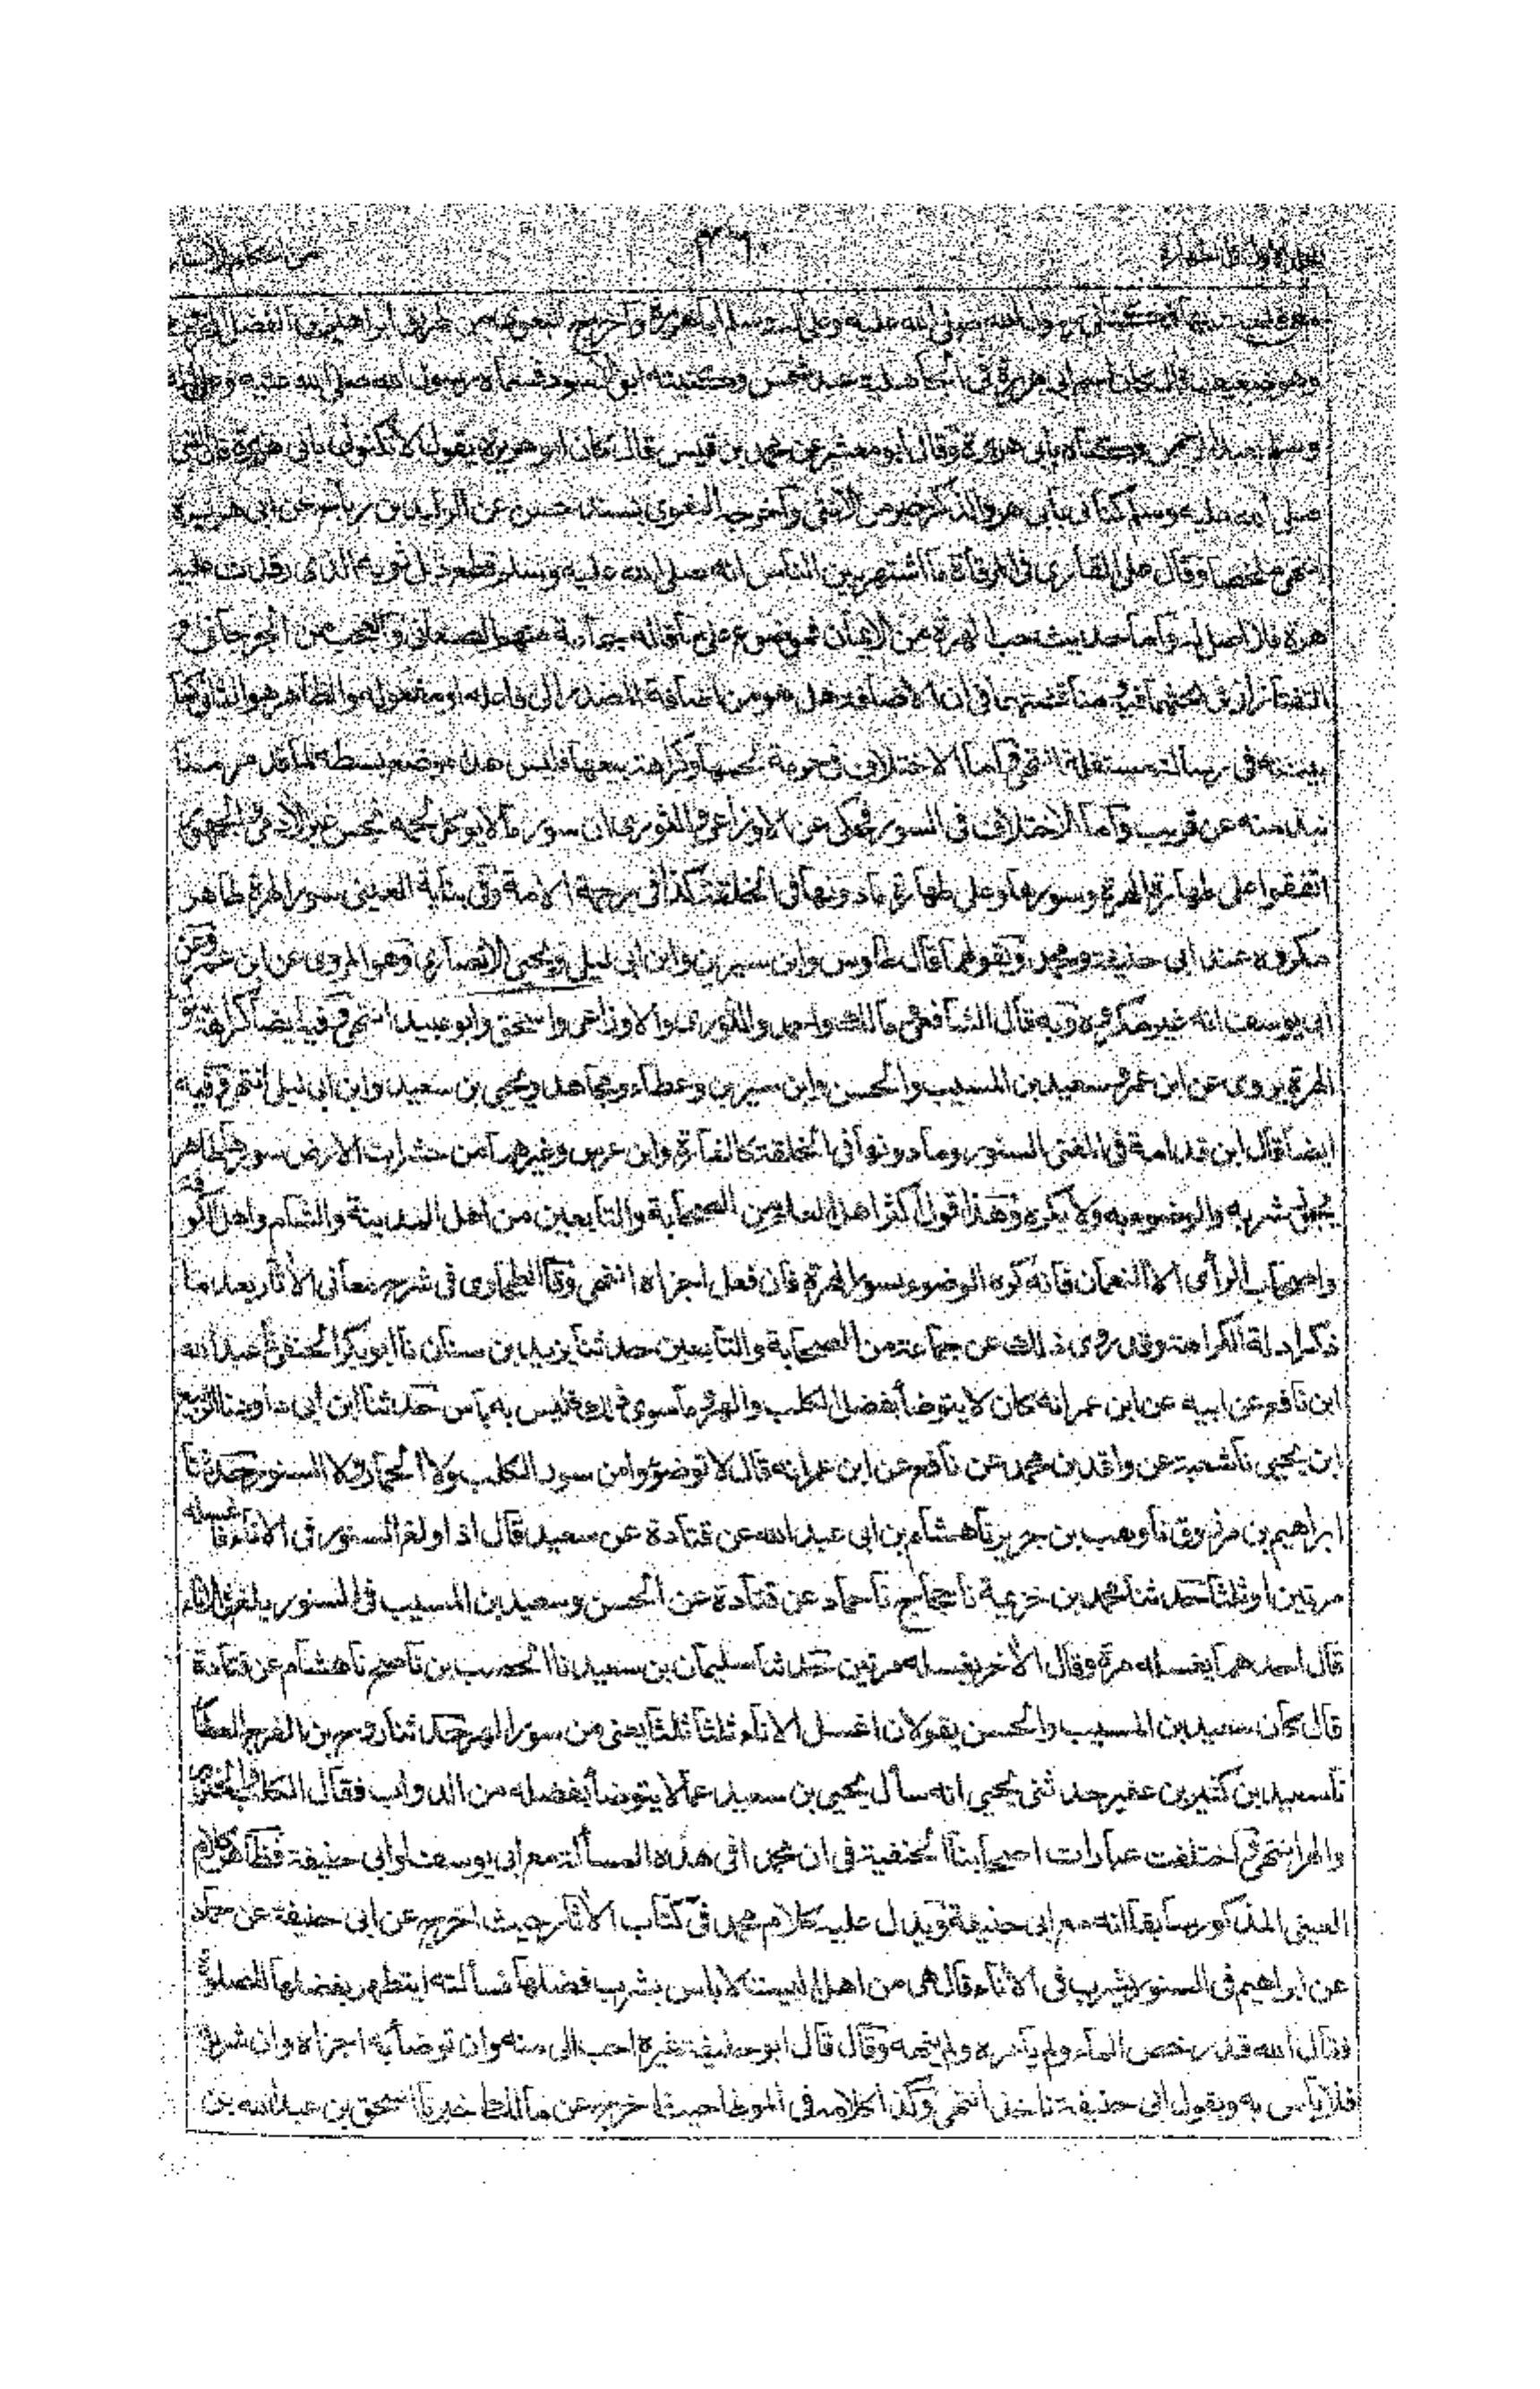 رسول الله صلى الله عليه وعلى آله وسلم اباهريرة وآخرج البغوى من طريق ابراهيم بن الفضل
وهو ضعيف قال كان اسم ابى هريرة فى الجاهلية عبد شمس وكنيته ابو الاسود فسماه رسول الله صلى الله عليه وعلى آله
وسلم عبد الرحمن وكناه بابى هريرة وقال ابو معشر عن محمد بن قيس قال كان ابو هريرة يقول لا تكنونى بابى هريرة فان النبى
صلى الله عليه وسلم كنانى بابى هر والذكر خير من الانثى وآخرجه البغوى بسند حسن عن الوليد بن رباح عن ابى هريرة
انتهى ملخصا وقال على القارى فى المرقاة ما اشتهر بين الناس انه صلى الله عليه وسلم قطع ذيل ثوبه الذى رقدت عليه
هرة فلا اصل له وآما حديث حب الهرة من الايمان فموضوع على ما قاله جماعة منهم الصغانى والعجب من الجرجانى و
التفتازانى فى بحثهما فيه مناقشتهما فى ان الاضافة هل هو من اضافة المصدر الى فاعله او مفعوله والظاهر هو الثانى كما
بينته فى رسالة مستقلة انتهى وآما الاختلاف فى حرمة لحمها وكراهة بيعها فليس هذا موضع بسطه كما مر منا
نبذ منه عن قريب وآما الاختلاف فى السور فحكى عن الاوزاعى والثورى ان سور ما لا يوكل لحمه نجس غير الآدمى
اتفقوا على طهارة الهرة وسورها وعلى طهارة ما دونها فى الخلقة كذا فى رحمة الامة وفى بناية العينى سور الهرة طاهر
مكروه عند ابى حنيفة ومحمد وبقولهما قال طاوس وابن سيرين وابن ابى ليلى ويحيى الانصارى وهو المروى عن ابن عمر وعن
ابى يوسف انه غير مكروه وبه قال الشافعى ومالك واحمد والثورى والاوزاعى واسحق وابو عبيد انتهى وفيه ايضا كراهة سور
الهرة يروى عن ابن عمر وسعيد بن المسيب والحسن وابن سيرين وعطاء ومجاهد ويحيى بن سعيد وابن ابى ليلى انتهى وفيه
ايضا قال ابن قدامة فى المغنى السنور وما دونها فى الخلقة كالفارة وابن عرس وغيرهما من حشرات الارض سورها طاهر
يجوز شربه والوضوء به ولا يكره وهذا قول اكثر اهل العلم من الصحابة والتابعين من اهل المدينة والشام واهل الكوفة
واصحاب الرأى الا النعمان فانه كره الوضوء بسور الهرة فان فعل اجزاه انتهى وقال الطحاوى فى شرح معانى الآثار بعد ما
ذكر ادلة الكراهة وقد روى ذلك عن جماعة من الصحابة والتابعين حدثنا يزيد بن سنان نا ابو بكر الحنفى نا عبد الله
ابن نافع عن ابيه عن ابن عمر انه كان لا يتوضأ بفضل الكلب والهر وما سوى ذلك فليس به باس حدثنا ابن ابى داود نا الربيع
ابن يحيى نا شعبة عن واقد بن محمد عن نافع عن ابن عمر انه قال لا توضؤوا من سور الكلب ولا الحمار ولا السنور حدثنا
ابراهيم بن مرزوق نا وهب بن جرير نا هشام بن ابى عبد الله عن قتادة عن سعيد قال اذا ولغ السنور فى الاناء فاغسله
مرتين او ثلثا حدثنا محمد بن خزيمة نا حجاج نا حماد عن قتادة عن الحسن وسعيد بن المسيب فى السنور يلغ فى الاناء
قال احدهما يغسله مرة وقال الآخر يغسله مرتين حدثنا سليمان بن سعيد نا الخصيب بن ناصح نا هشام عن قتادة
قال كان سعيد بن المسيب والحسن يقولان اغسل الاناء ثلثا ثلثا يعنى من سور الهر حدثنا روح بن الفرج القطان
نا سعيد بن كثير بن عفير حدثنى يحيى انه سأل يحيى بن سعيد عما لا يتوضأ بفضله من الدواب فقال الكلب والخنزير
والهر انتهى واختلفت عبارات اصحابنا الحنفية فى ان محمدا فى هذه المسألة مع ابى يوسف او ابى حنيفة فظاهر كلام
العينى المذكور سابقا انه مع ابى حنيفة ويدل عليه كلام محمد فى كتاب الآثار حيث اخرج عن ابى حنيفة عن حماد
عن ابراهيم فى السنور يشرب فى الاناء قال هى من اهل البيت لا باس بشرب فضلها فسألته ايتطهر بفضلها للصلوة
فقال الله قد رخص الماء ولم يأمره ولم ينهه وقال قال ابو حنيفة غيره احب الى منه وان توضأ به اجزاه وان شربه
فلا بأس به وبقول ابى حنيفة ناخذ انتهى وكذا كلامه فى الموطا حيث اخرج عن مالك اخبرنا اسحق بن عبد الله بن